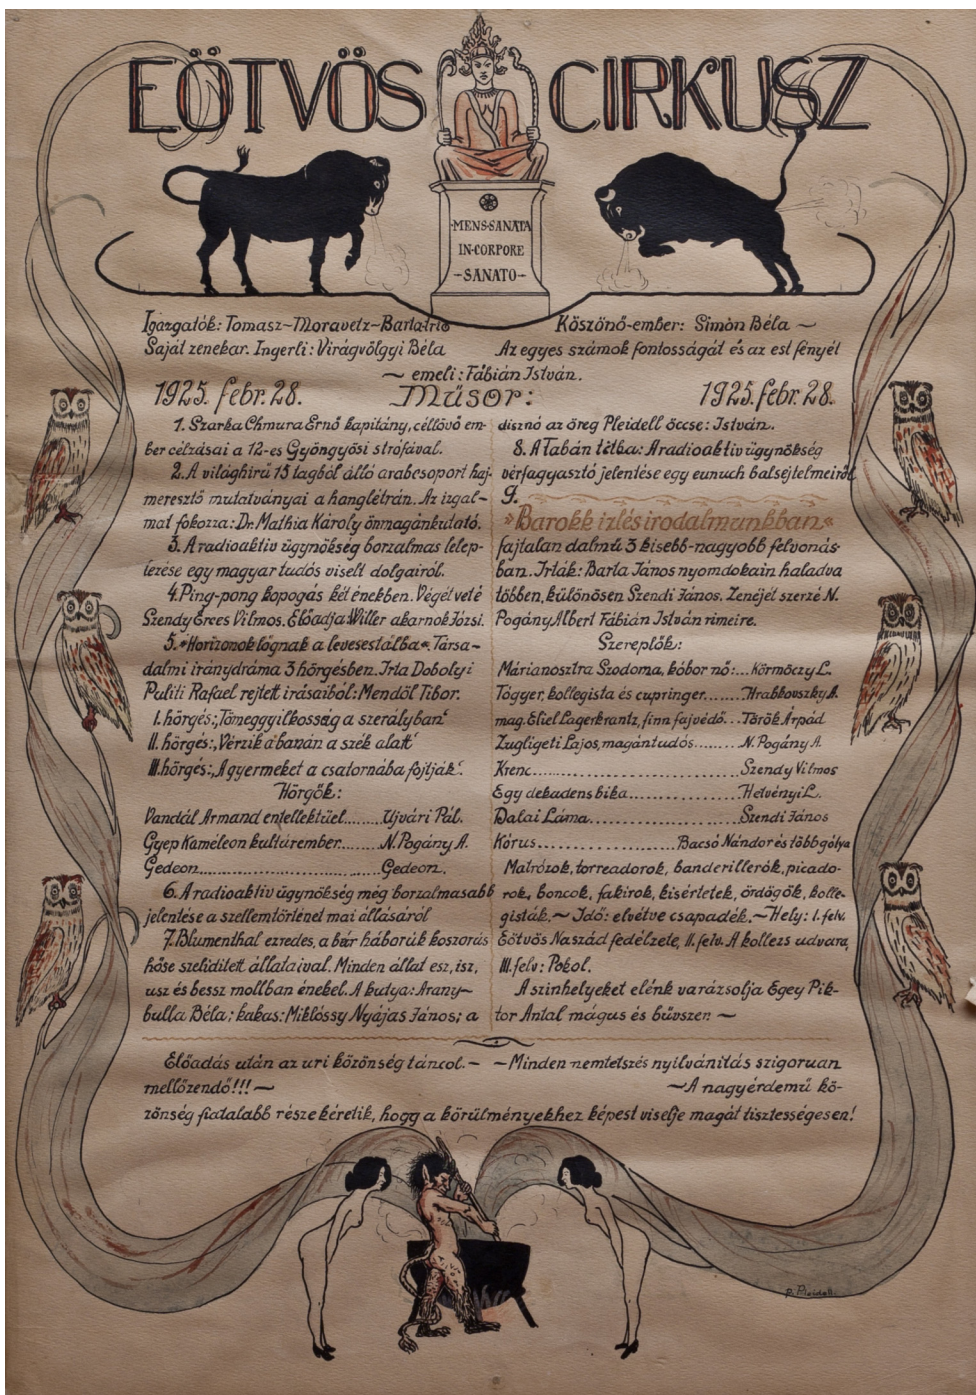 EÖTVÖS CIRKUSZ
MENS·SANATA
IN·CORPORE
-SANATO-
Igazgatók: Tomasz~Moravetz~Barta-trió
Köszönő-ember: Simon Béla ~
Saját zenekar. Ingerli: Virágvölgyi Béla
Az egyes számok fontosságát és az est fényét
~ emeli: Fábián István.
1925. febr. 28.
Műsor:
1925. febr. 28.
1. Szarka Chmura Ernő kapitány, céllövő em-
ber célzásai a 12-es Gyöngyösi strófával.
2. A világhírű 15 tagból álló arabcsoport haj-
meresztő mutatványai a hanglétrán. Az izgal-
mat fokozza: Dr. Mathia Károly önmagánkutató.
3. A radioaktiv ügynökség borzalmas lelep-
lezése egy magyar tudós viselt dolgairól.
4. Ping-pong kopogás két énekben. Végét veté
Szendy Érces Vilmos. Előadja Willer akarnok Józsi.
5. »Horizonok lógnak a levesestálba«. Társa-
dalmi iránydráma 3 hörgésben. Irta Dobolyi
Puliti Rafael rejtett irásaiból: Mendöl Tibor.
I. hörgés: „Tömeggyilkosság a szerályban"
II. hörgés: „Vérzik a banán a szék alatt"
III. hörgés: „A gyermeket a csatornába fojtják".
Hörgők:
Vandál Armand entellektüel......Ujvári Pál.
Gyep Kaméleon kultúrember.......N. Pogány A.
Gedeon.............................Gedeon.
6. A radioaktiv ügynökség még borzalmasabb
jelentése a szellemtörténet mai állásáról
7. Blumenthal ezredes, a bár háborúk koszorús
hőse szeliditett állataival. Minden állat esz, isz,
usz és bessz mollban énekel. A kutya: Arany-
bulla Béla; kakas: Miklóssy Nyájas János; a
disznó az öreg Pleidell öccse: István.
8. A Tabán titka: A radioaktiv ügynökség
vérfagyasztó jelentése egy eunuch balsejtelmeiről.
9.
»Barokk izlés irodalmunkban«
fajtalan dalmű 3 kisebb-nagyobb felvonás-
ban. Irták: Barta János nyomdokain haladva
többen, különösen Szendi János. Zenéjét szerzé N.
Pogány Albert Fábián István rimeire.
Szereplők:
Márianosztra Szodoma, kóbor nő:...Körmöczy L.
Tőgyer, kollegista és cupringer......Hrabkovszky A.
mag. Eliel Lagerkrantz, finn fajvédő...Török Árpád
Zugligeti Lajos, magántudós........N. Pogány A.
Krenc..............................Szendy Vilmos
Egy dekadens bika.................Hetvényi L.
Dalai Láma........................Szendi János
Kórus..................Bacsó Nándor és több gólya
Matrózok, torreadorok, banderillerók, picado-
rok, boncok, fakirok, kisértetek, ördögök, kolle-
gisták.~ Idő: elvétve csapadék.~Hely: I. felv.
Eötvös Naszád fedélzete, II. felv. A kollezs udvara,
III. felv: Pokol.
A szinhelyeket elénk varázsolja Egey Pik-
tor Antal mágus és bűvszer ~
Előadás után az uri közönség táncol.~
~Minden nemtetszés nyilvánitás szigoruan
mellőzendő!!!~
~A nagyérdemű kö-
zönség fiatalabb része kéretik, hogy a körülményekhez képest viselje magát tisztességesen!
P. Pleidell.